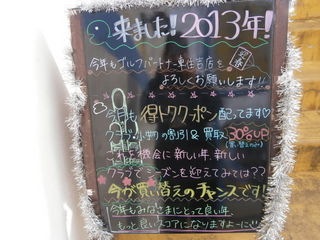 来ました！2013年！
今年もゴルフパートナー東住吉店を
よろしくお願いします!!
今月も得トククーポン配ってます♡
クラブ・小物の割引＆買取30%UP
(買い替えのみ)
これを機会に新しい年、新しい
クラブでシーズンを迎えてみては??
今が買い替えのチャンスです!
今年もみなさまにとって良い年、
もっと良いスコアになりますよーに